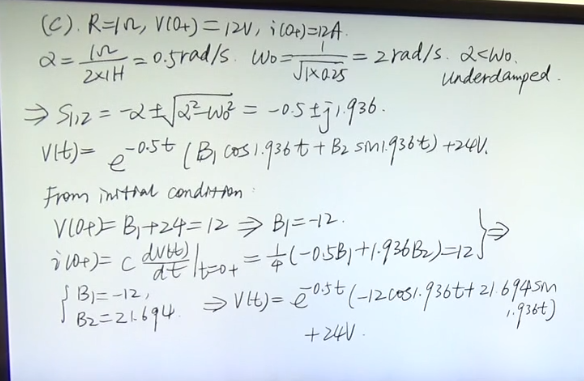 (C). R=1Ω, V(0+)=12V, i(0+)=12A.
α = 1Ω / 2×1H = 0.5rad/s. ω0 = 1 / √1×0.25 = 2rad/s. α<ω0.
underdamped.
⇒ S1,2 = -α ± √α²-ω0² = -0.5 ± j1.936.
V(t) = e^-0.5t (B1 cos1.936t + B2 sin1.936t) + 24V.
From initial condition:
V(0+) = B1+24 = 12 ⇒ B1=-12.
i(0+) = C dV(t)/dt |t=0+ = 1/4 (-0.5B1+1.936B2) = 12 } ⇒
{ B1=-12, B2=21.694. ⇒ V(t) = e^-0.5t (-12cos1.936t + 21.694sin
1.936t)
+24V.